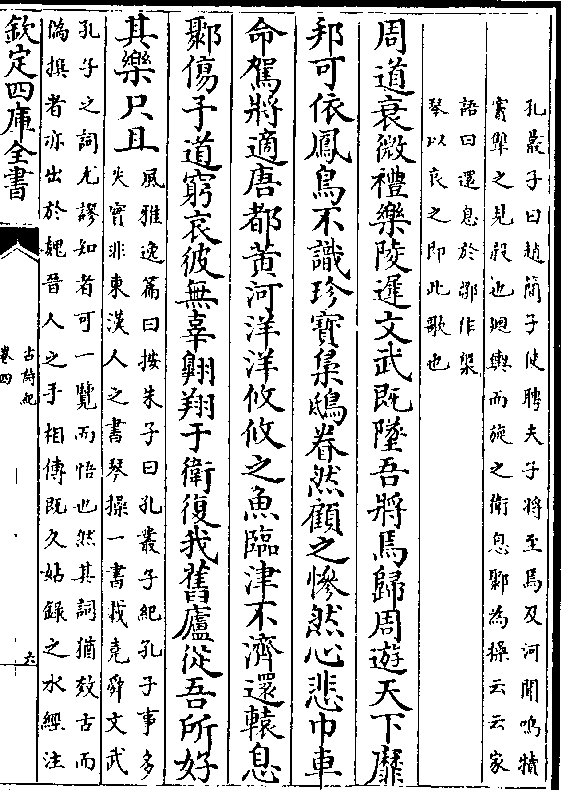 孔叢子曰趙簡子使聘夫子將至焉及河聞鳴犢
竇犨之見殺也迴輿而旋之衛息鄹為操云云家
語曰還息於鄹作槃
琴以哀之即此歌也
周道衰微禮樂陵遲文武既墜吾將焉歸周遊天下靡
邦可依鳳鳥不識珍寶梟鴟眷然顧之慘然心悲巾車
命駕將適唐都黃河洋洋攸攸之魚臨津不濟還轅息
鄹傷予道窮哀彼無辜翱翔于衛復我舊廬從吾所好
其樂只且
風雅逸篇曰按朱子曰孔叢子紀孔子事多
失實非東漢人之書琴操一書載堯舜文武
孔子之詞尤謬知者可一覽而悟也然其詞猶效古而
偽撰者亦出於魏晉人之手相傳既久姑錄之水經注
欽定四庫全書
古詩紀
卷四
六